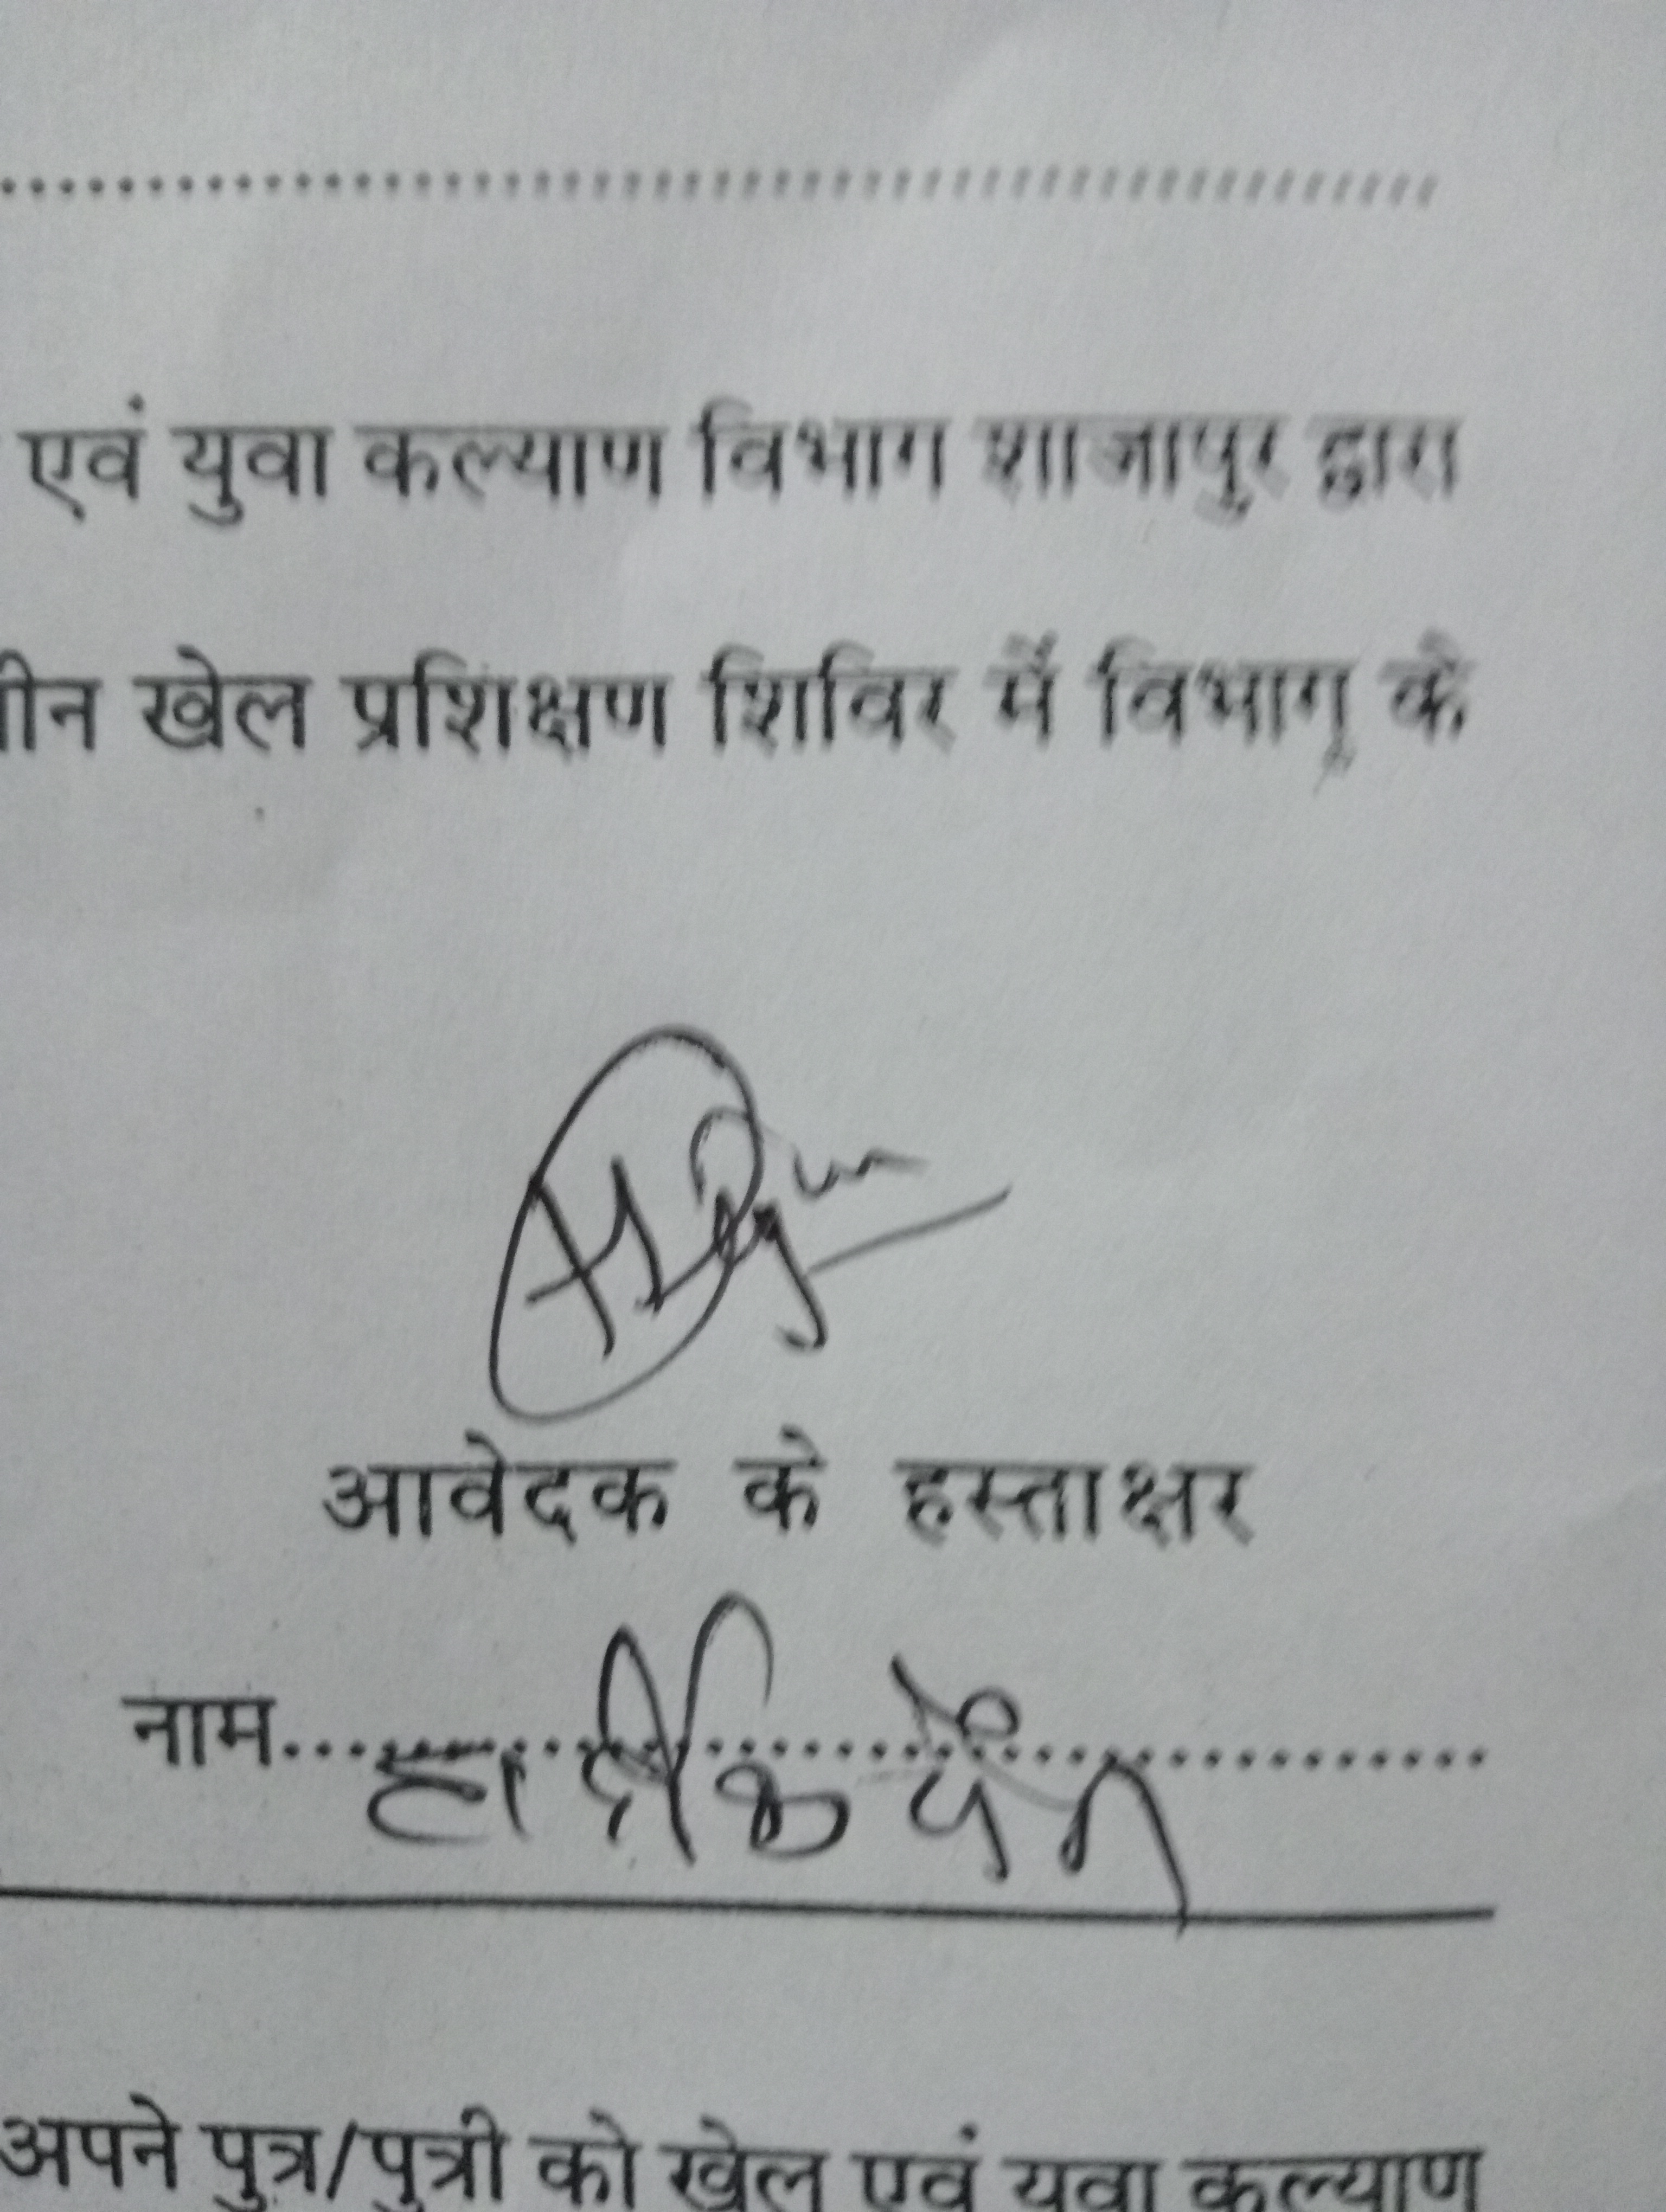 एवं युवा कल्याण विभाग शाजापुर द्वारा
ीन खेल प्रशिक्षण शिविर में विभाग के
आवेदक के हस्ताक्षर
नाम.......... हार्दिक
अपने पुत्र/पुत्री को खेल एवं युवा कल्याण